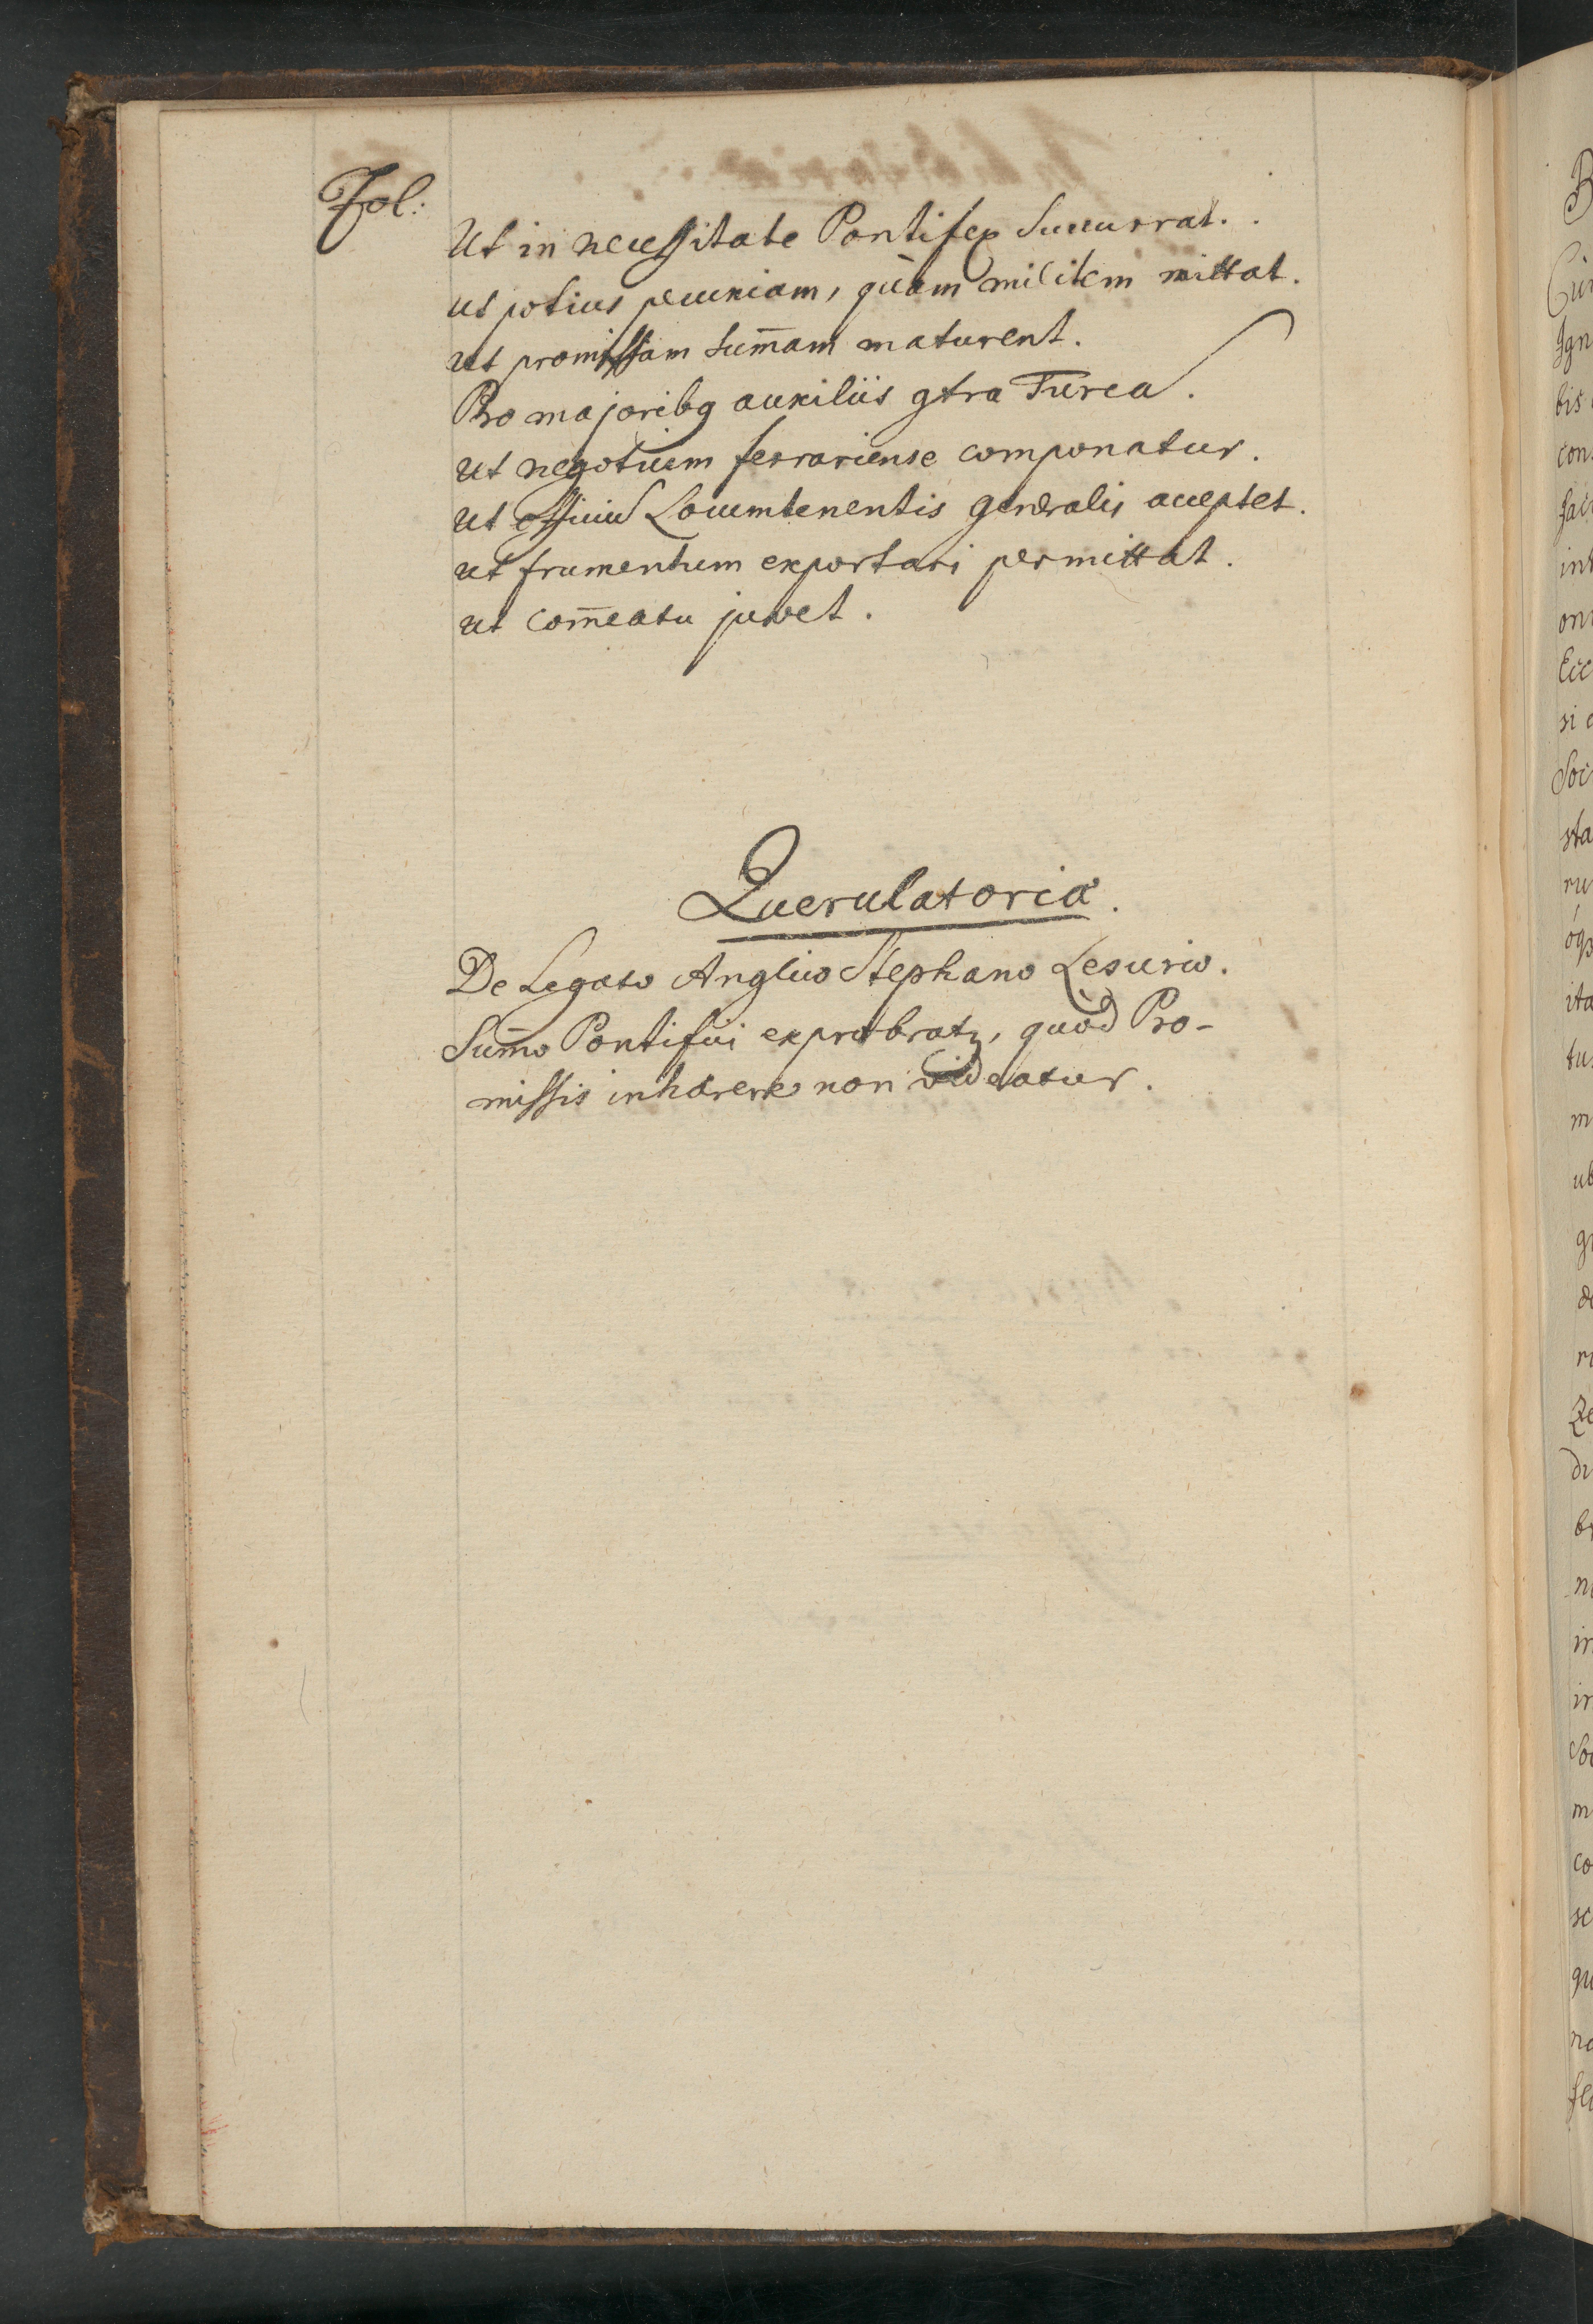 Fol:
Ut in necessitate Pontifex Succurrat.
ut potius pecuniam, quàm militem mittat.
ut promissam sum̄am maturent.
Pro majoribq auxiliis gtra Turca.
ut negotium ferrariense componatur.
ut officiu Locumtenentis generalis acceptet.
ut frumentum exportari permittat.
ut com̄eatu juvet.
Querulatoria.
De Legato Anglico Stephano Lesurio.
Sum̄o Pontifici exprobratz, quòd Pro-
missis inhærere non videatur.